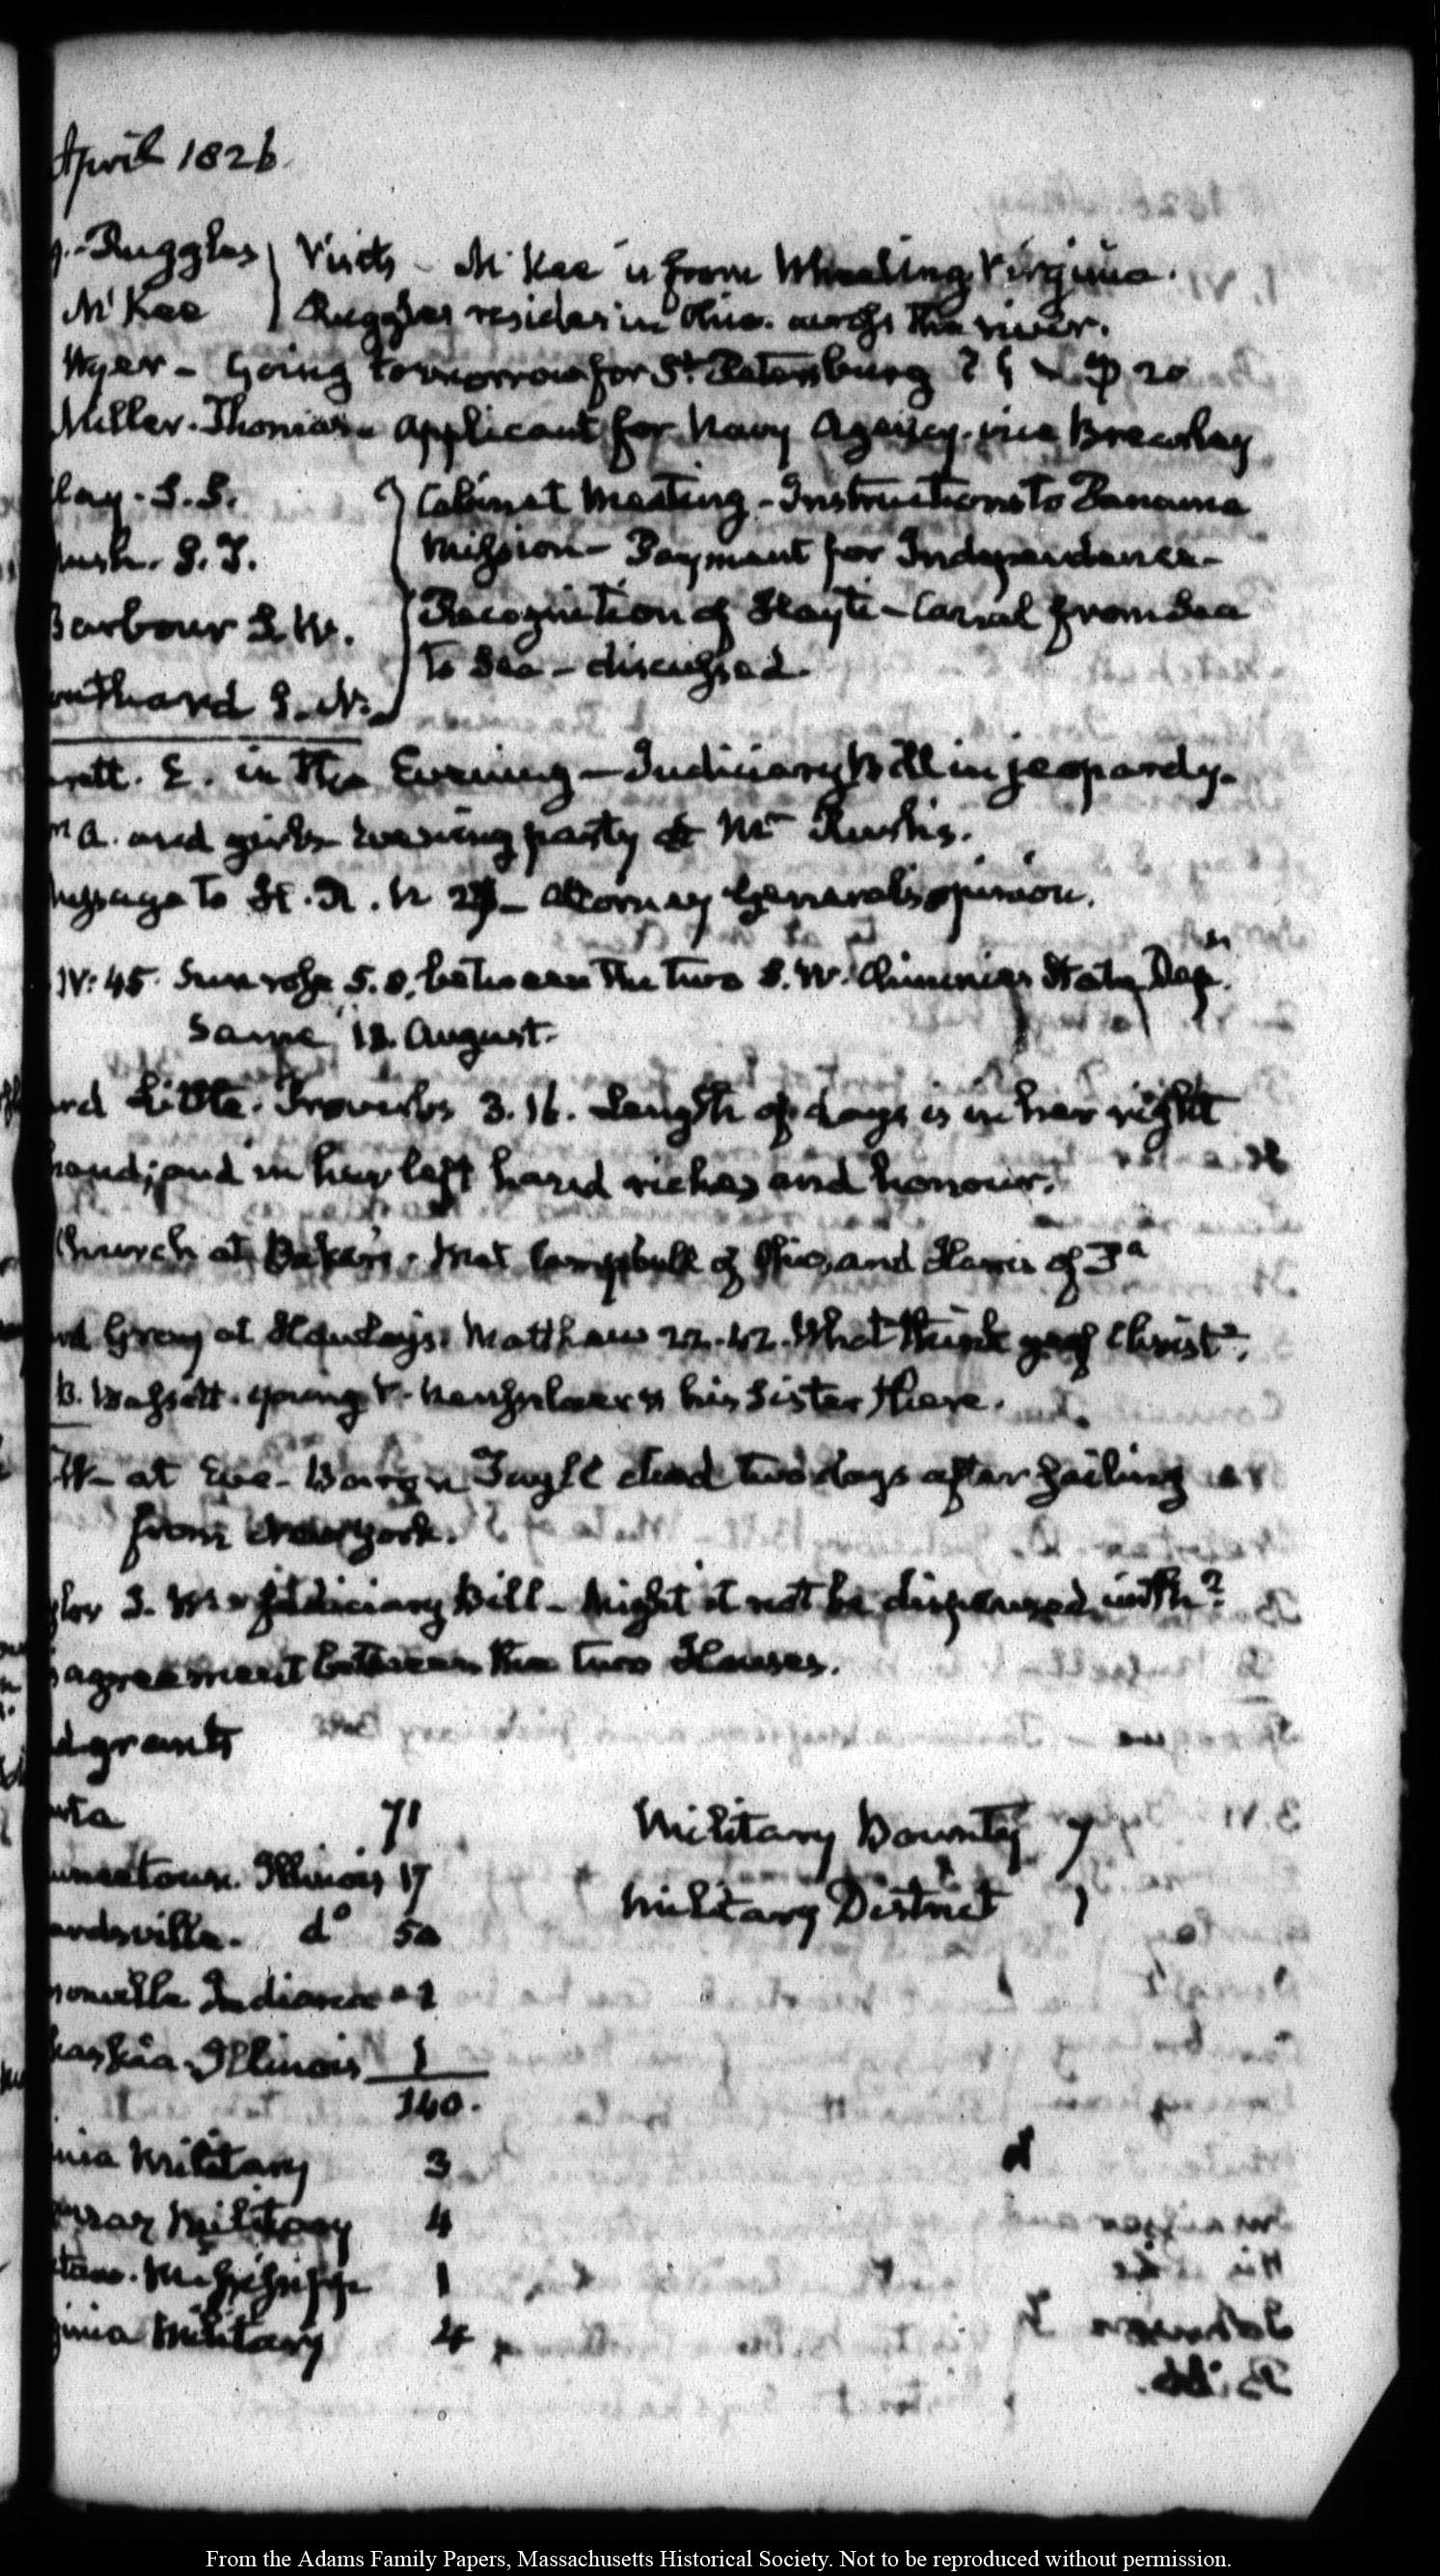 April 1826.
Ruggles } Visits - McKee is from Wheeling, Virginia.
McKee } Ruggles resides in Ohio. across the river.
Wyer - Going tomorrow for St. Petersburg
Miller. Thomas - Applicant for Navy Agency. vice Brearley
lay. S.S. } Cabinet Meeting - Instructions to Panama
ush. S.T. } Mission - Payment for Independence -
Barbour S.W. } Recognition of Hayti - Canal from Sea
outhard S.N. } to Sea - discussed.
rett. E. in the Evening - Judiciary Bill in jeopardy.
a. and girls evening party at Mr Rush's.
essage to H.R. Attorney General's opinion.
IV: 45. Sun rose 5.8. between the two S.W. Chimnies State Dept.
Same 18. August.
rd Little. Proverbs 3.16. Length of days is in her right
hand; and in her left hand riches and honour.
Church at Baker's. Met Campbell of Ohio, and Harris of Pa
rd Gray at Hawley's. Matthew 22.42. What think ye of Christ?
B. Bassett. young V. Rensselaer & his Sister there.
at Eve - Baron Tuyll died two days after sailing
from New York.
lor J. W. Judiciary Bill - Might it not be dispensed with?
sagreement between the two Houses.
d grants
71 Military Bounty 7
wneetown. Illinois 17 Military District 1
ardsville. do 50
sonville Indiana 1
kaskia. Illinois 1
140.
inia Military 3
Military 4
Mississippi 1
ginia Military 4
From the Adams Family Papers, Massachusetts Historical Society. Not to be reproduced without permission.